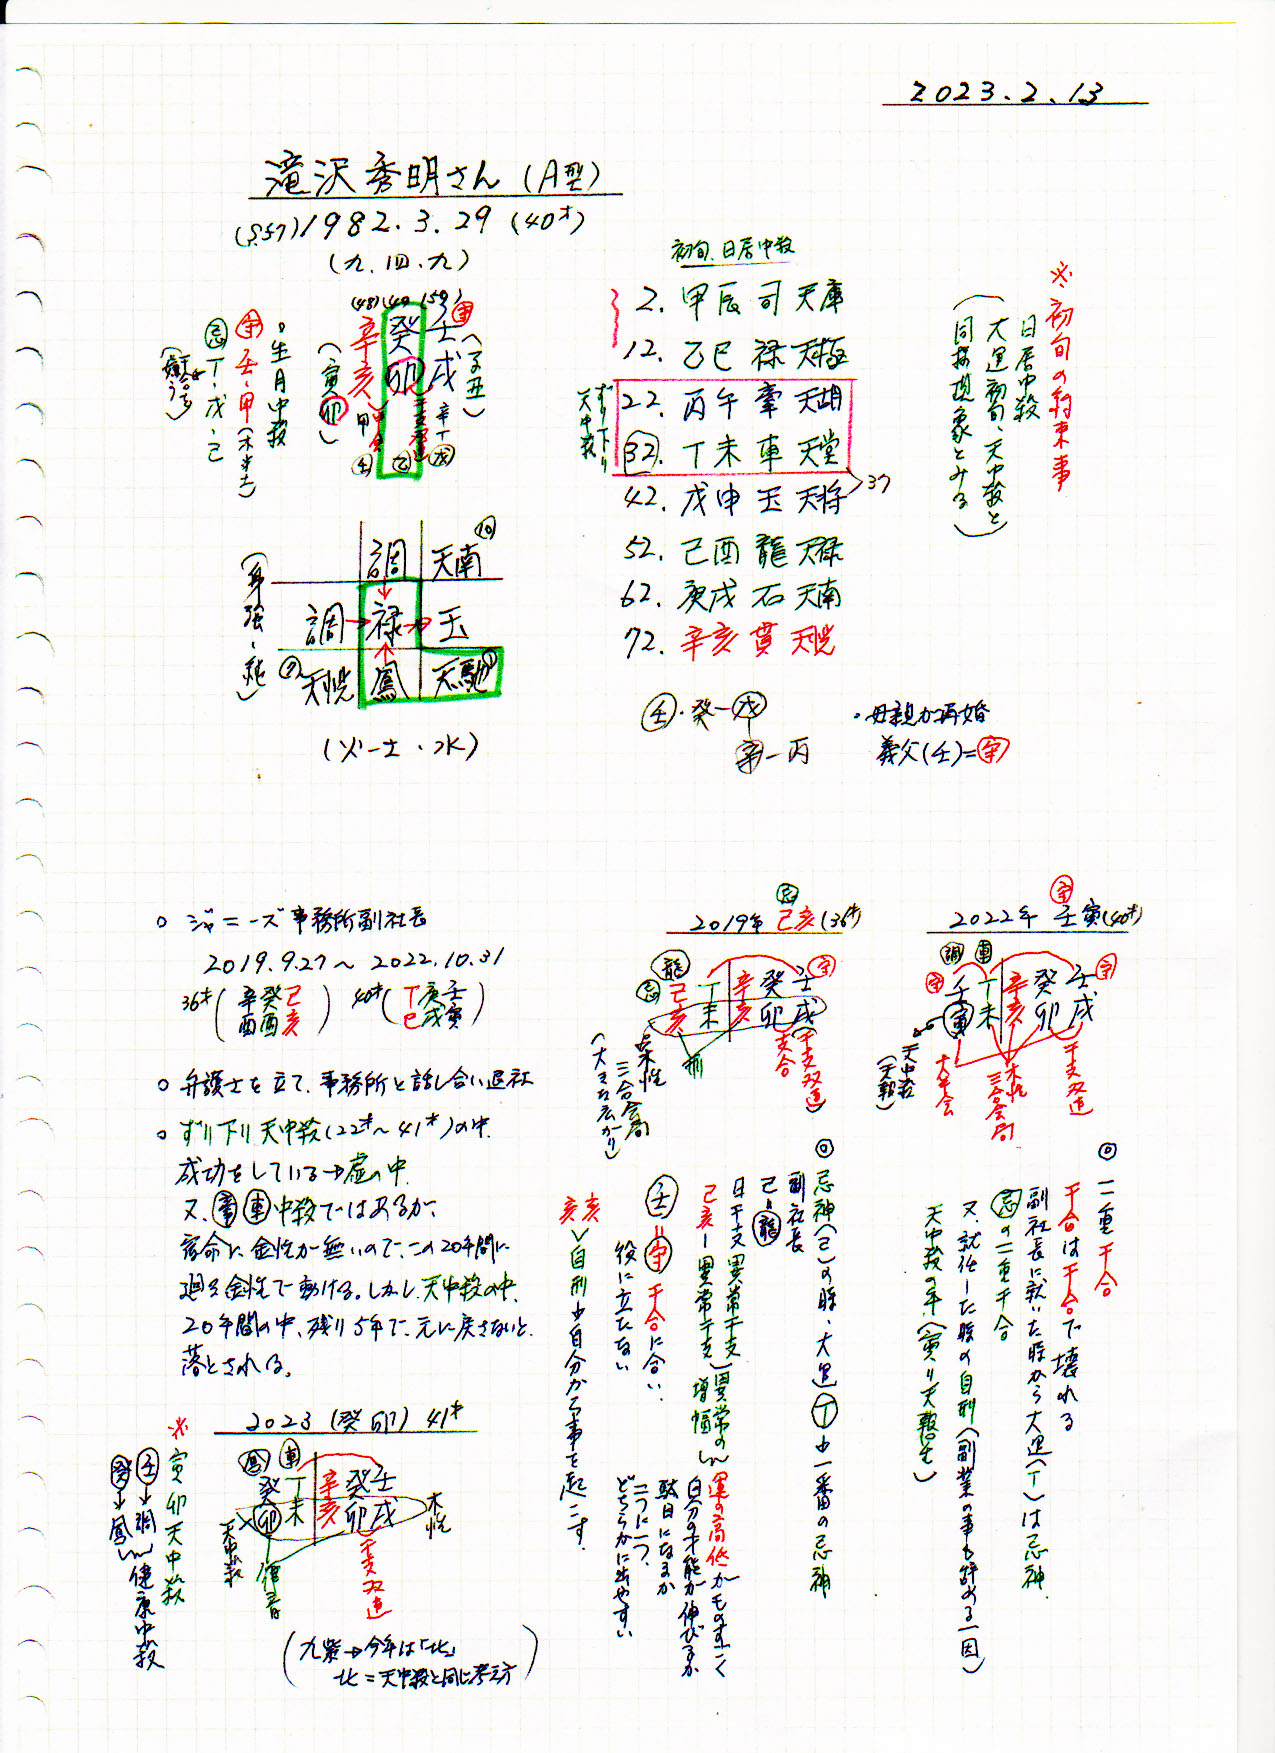 2023.2.13
滝沢秀明さん (A型)
(S57) 1982.3.29 (40才)
(九.四.九)
(48)(40)(59)
辛癸壬
亥卯戌
(子丑)
(寅卯)
甲 乙 辛丁戊
干支双連
。生月中殺
守 壬・甲(木半吉)
忌 丁・戊・己
調 天南 10
調→禄→玉
天恍 鳳 天馳
(身強・純)
(火-土・水)
初旬.日居中殺
2. 甲辰 司 天庫
12. 乙巳 禄 天極
22. 丙午 牽 天胡
32. 丁未 車 天堂
42. 戊申 玉 天将 >37
52. 己酉 龍 天禄
62. 庚戌 石 天南
72. 辛亥 貫 天恍
ずり下り
天中殺
※初旬の約束事
日居中殺
大運初旬、天中殺と
同様現象とみる
壬・癸-戊
辛-丙
・母親が再婚
義父(壬)=守
○ ジャニーズ事務所副社長
2019.9.27〜2022.10.31
36才(辛癸己 酉酉亥) 40才(丁庚壬 巳戌寅)
○ 弁護士を立て、事務所と話し合い退社
○ ずり下り天中殺(22才〜41才)の中、
成功をしている→虚の中
又、牽車中殺ではあるが、
宿命に金性が無いので、この20年間に
廻る金性で動ける。しかし天中殺の中、
20年間の中、残り5年で、元に戻さないと、
落とされる。
2023(癸卯)41才
鳳 車
癸丁辛癸壬
卯未亥卯戌
木性
天中殺
干支双連
※寅卯天中殺
壬→調
癸→鳳
健康中殺
(九紫→今年は「北」
北=天中殺と同じ考え方)
忌
2019年 己亥(36才)
龍
忌 己丁辛癸壬 守
亥未亥卯戌
刑
支合
(干支双連)
木性
三合会局
(大きな広がり)
◎忌神(己)の時、大運丁も一番の忌神
副社長
己=龍
日干支 異常干支
己亥-異常干支
異常の増幅
運の高低がものすごく
自分の才能が伸びるか
駄目になるか
二つに一つ、
どちらかに出やすい
壬=守 干合に合い、
役に立たない
亥亥>自刑も自分から事を起こす。
守
2022年 壬寅(40才)
調 車
守 壬丁辛癸壬 守
寅未亥卯戌
天中殺
(天報)
大半会
木性
三合会局
干支双連
◎二重干合
干合は干合で壊れる
副社長に就いた時から大運(丁)は忌神
忌の二重干合
又、就任した時の自刑(副業の事も辞める一因)
天中殺の年(寅リ天報星)